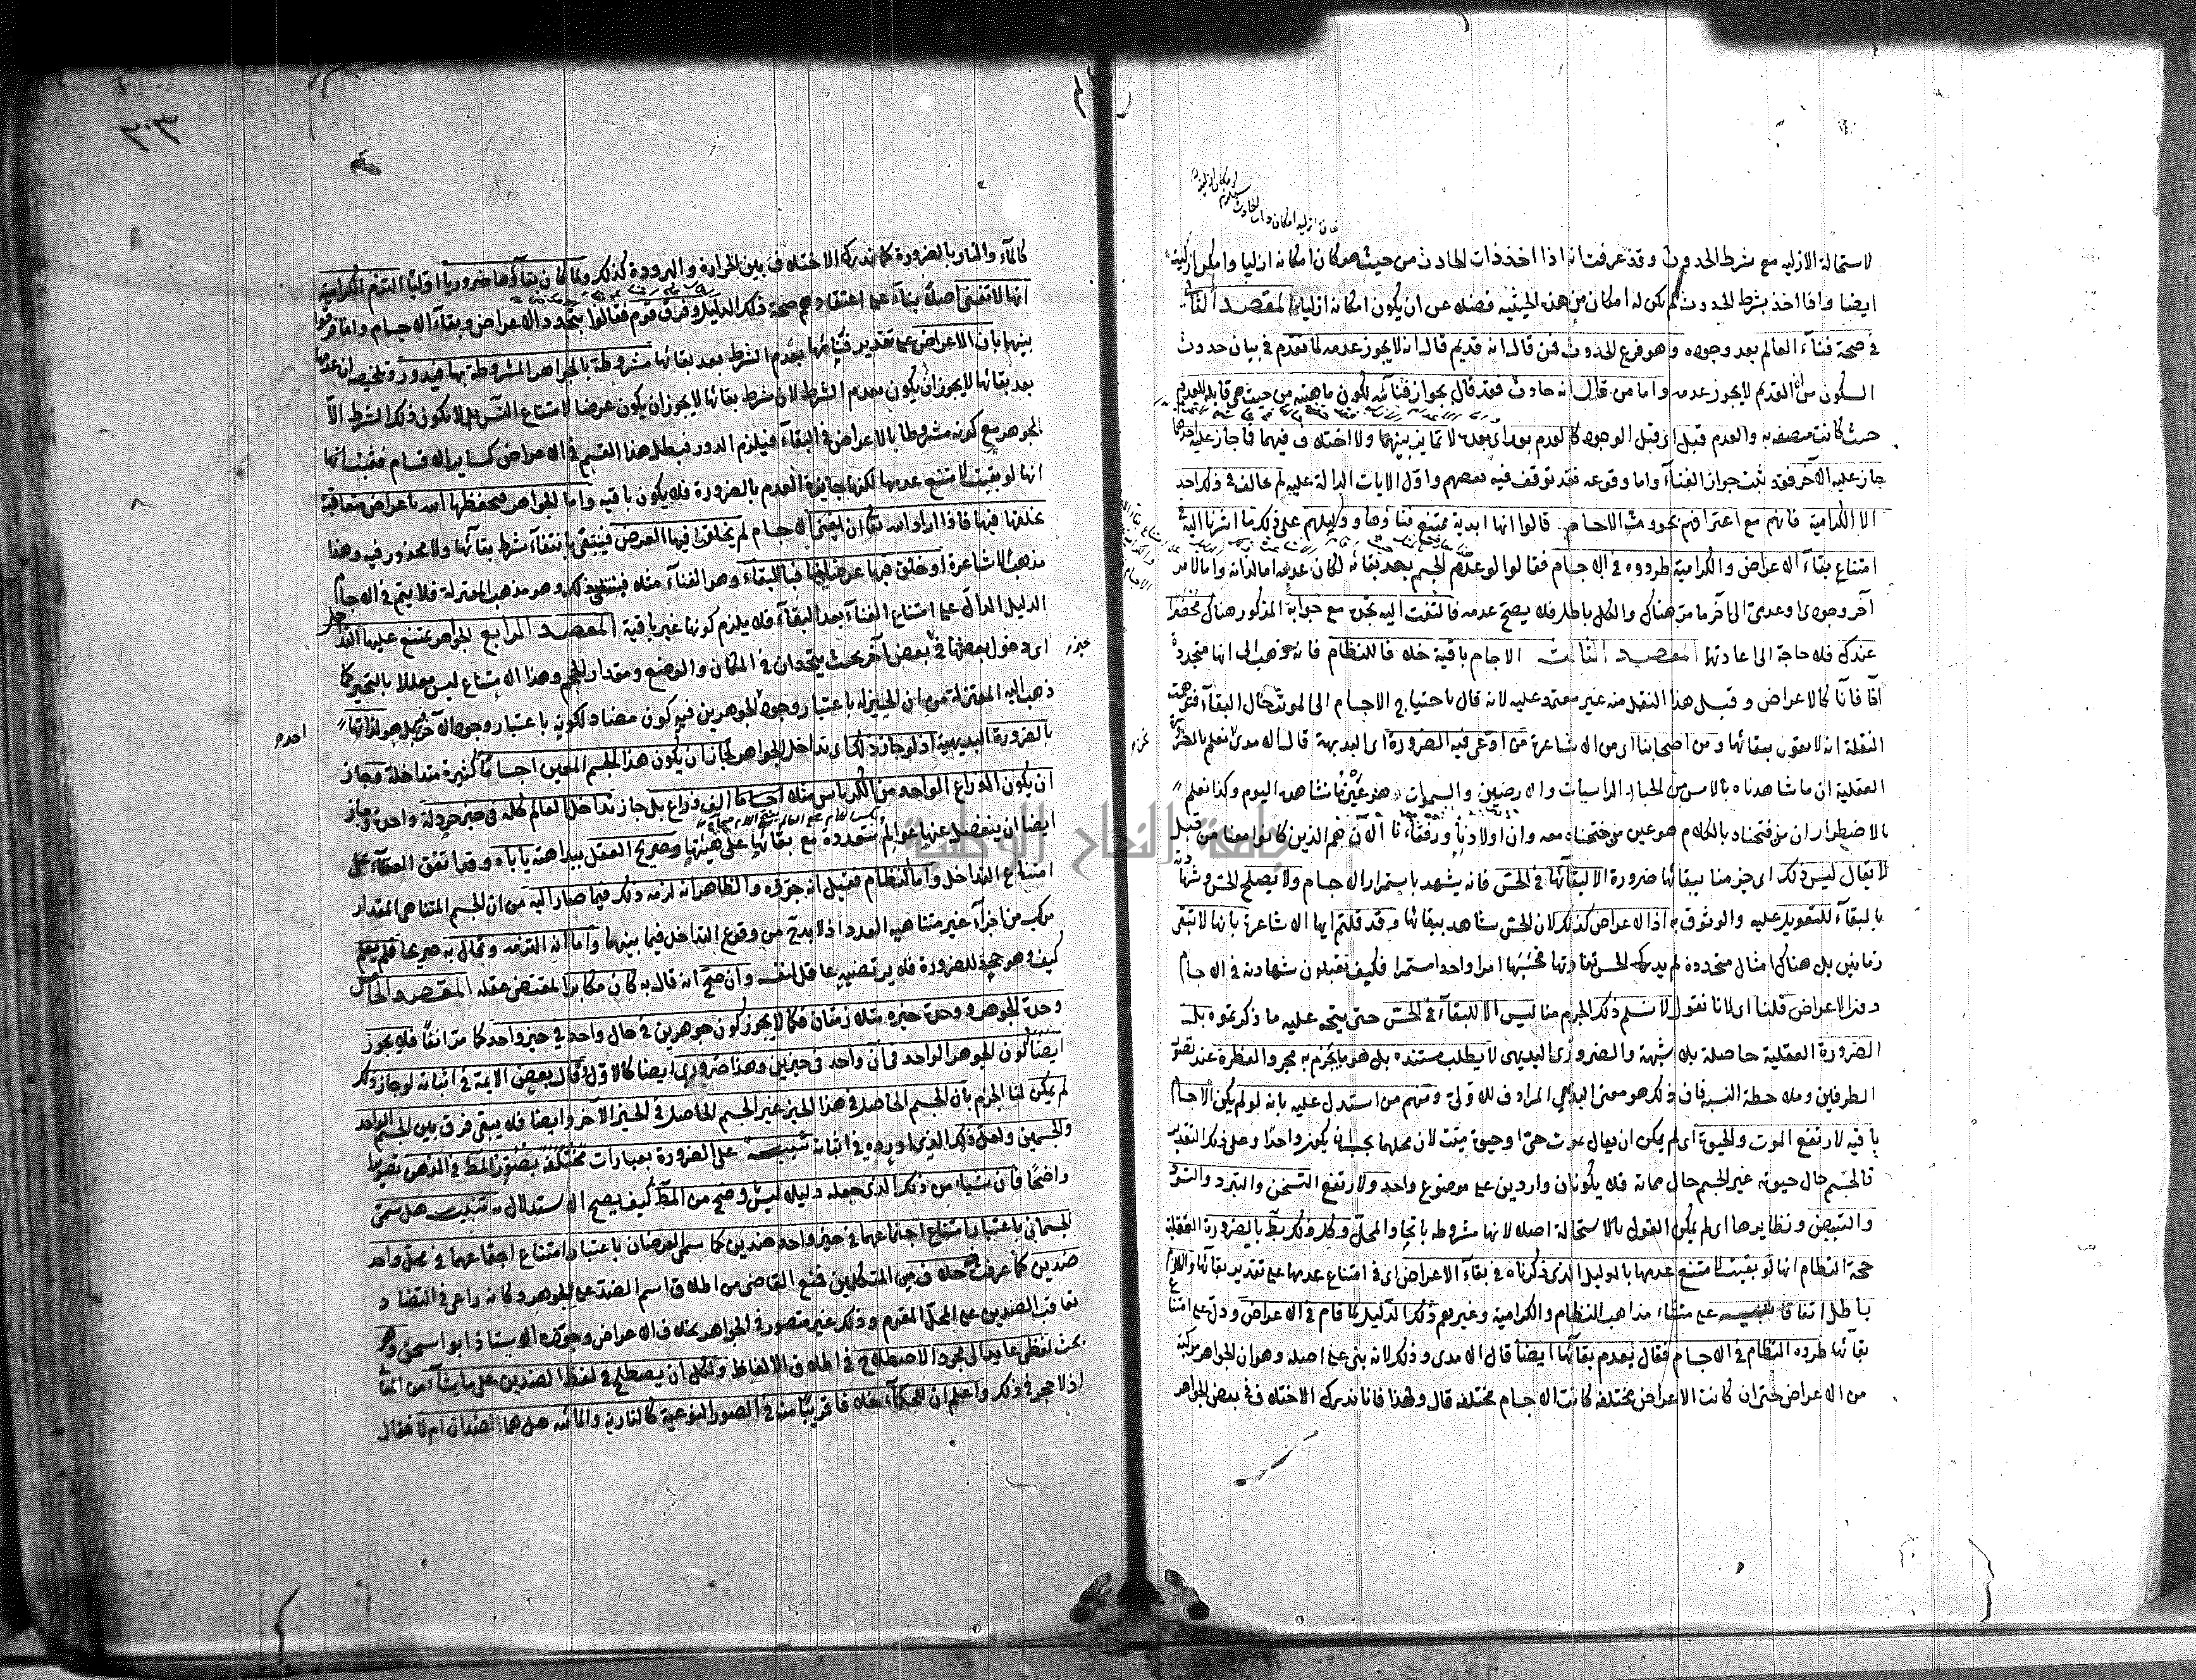 لاستحالة الازلية مع شرط الحدوث وقد عرفت انه اذا اخذ ذات الحادث من حيث هو كان امكانه ازليا
ايضا واذا اخذ بشرط الحدوث لم يكن له امكان من هذه الحيثية فضلا عن ان يكون امكانه ازليا المقصد الثاني
في صحة فناء العالم بعد وجوده وهو فرع الحدوث فمن قال انه قديم قال انه لا يجوز عدمه لما تقدم في بيان حدوث
السكون من ان القديم لا يجوز عدمه واما من قال انه حادث فقد قال بجواز فنائه لكون ماهيته من حيث هي قابلة للعدم
حيث كانت متصفة به والعدم قبل اي قبل الوجود كالعدم بعد اي بعده لا تمايز بينهما ولا اختلاف فيهما فما جاز عليه احدهما
جاز عليه الآخر فقد ثبت جواز الفناء واما وقوعه فقد توقف فيه بعضهم واول الآيات الدالة عليه لم يخالف في ذلك احد
الا الكرامية فانهم مع اعترافهم بحدوث الاجسام قالوا انها ابدية ممتنع فناؤها ودليلهم على ذلك ما اشرنا اليه في
امتناع بقاء الاعراض والكرامية طردوه في الاجسام فقالوا لو عدم الجسم بعد بقائه لكان عدمه اما لذاته واما لامر
آخر وجودي او عدمي الى آخر ما مر هناك والكل باطل فلا يصح عدمه فالتفت اليه تجده مع جوابه المذكور هناك محضرا
عندك فلا حاجة الى اعادتها المقصد الثالث الاجسام باقية خلافا للنظام فانه ذهب الى انها متجددة
آنا فآنا كالاعراض وقيل هذا النقل منه غير معتمد عليه لانه قال باحتياج الاجسام الى المؤثر حال البقاء فتوهمت
النقلة انه لا يقول ببقائها ومن اصحابنا اي من الاشاعرة من ادعى فيه الضرورة اي البديهة قال الآمدي نعلم بالضرورة
العقلية ان ما شاهدناه بالامس من الجبال الراسيات والارضين والسموات هو عين ما نشاهده اليوم وكذا نعلم
بالاضطرار ان من فتحناه بالكلام هو عين من ختمناه معه وان اولادنا ورفقاءنا الآن هم الذين كانوا معنا من قبل
لا يقال ليس ذلك اي جزمنا ببقائها ضرورة الا لبقائها في الحس فانه يشهد باستمرار الاجسام ولا يصلح الحس وشهادته
بالبقاء للتعويل عليه والوثوق به اذ الاعراض كذلك لان الحس شاهد ببقائها وقد قلتم ايها الاشاعرة بانها لا تبقى
زمانين بل هناك امثال متجددة لم يدرك الحس تفاوتها فحسبها امرا واحدا مستمرا فكيف تقبلون شهادته في الاجسام
دون الاعراض قلنا اي لانا نقول لا نسلم ذلك الجزم منا ليس الا للبقاء في الحس حتى يتجه عليه ما ذكرتموه بل
الضرورة العقلية حاصلة بلا شبهة والضروري البديهي لا يطلب مستنده بل هو ما يجزم به مجرد الفطرة عند تصور
الطرفين وملاحظة النسبة فان ذلك هو معنى البديهي المرادف للاولى ومنهم من استدل عليه بانه لو لم يكن الاجسام
باقية لارتفع الموت والحيوة اي لم يمكن ان يقال يموت حي او حيوة ميت لان محلهما يجب ان يكون واحدا وعلى ذلك التقدير
فالجسم حال حيوته غير الجسم حال مماته فلا يكونان واردين على موضوع واحد ولارتفع التسخن والتبرد والتسود
والتبيض ونظايرها اي لم يمكن القول بالاستحالة اصلا لانها مشروطة باتحاد المحل وكل ذلك بط بالضرورة العقلية
حجة النظام انها لو بقيت لامتنع عدمها بالدليل الذي ذكرناه في بقاء الاعراض اي في امتناع عدمها على تقدير بقائها واللازم
باطل اتفاقا تنبيه على منشاء مذاهب النظام والكرامية وغيرهم ذلك الدليل لما قام في الاعراض ودل على امتناع
بقائها طرده النظام في الاجسام فقال بعدم بقائها ايضا قال الآمدي وذلك لانه بنى على اصله وهو ان الجواهر مركبة
من الاعراض حتى ان كانت الاعراض مختلفة كانت الاجسام مختلفة قال ولهذا فانا ندرك الاختلاف في بعض الجواهر
٣٠٣
كالماء والنار بالضرورة كما ندرك الاختلاف بين الحرارة والبرودة كذلك ولما كان بقاؤها ضروريا اوليا التزم الكرامية
انها لا تفنى اصلا بناء على اعتقادهم صحة ذلك الدليل وفرق قوم فقالوا بتجدد الاعراض وبقاء الاجسام وانما فرقوا
بينهما بان الاعراض على تقدير فنائها بعدم الشرط بعد بقائها مشروطة بالجواهر المشروطة بها فيدور وتلخيصه ان عدمها
بعد بقائها لا يجوز ان يكون بعدم الشرط لان شرط بقائها لا يجوز ان يكون عرضا لامتناع التس فلا يكون ذلك الشرط الا
الجوهر مع كونه مشروطا بالاعراض في البقاء فيلزم الدور فبطل هذا القسم في الاعراض كساير الاقسام فثبت
انها لو بقيت لامتنع عدمها لكنها جايزة العدم بالضرورة فلا يكون باقية واما الجواهر فيحفظها الله باعراض متعاقبة
يخلقها فيها فاذا اراد الله تعالى ان يفنى الاجسام لم يخلق فيها العرض فينتفي بانتفاء شرط بقائها ولا محذور فيه وهذا
مذهب الاشاعرة او خلق فيها عرضا منافيا للبقاء وهو الفناء مثلا فينتفي بذلك وهو مذهب المعتزلة فلا يتم في الاجسام
الدليل الدال على امتناع الفناء بعد البقاء فلا يلزم كونها غير باقية المقصد الرابع الجواهر يمتنع عليها التداخل
اي دخول بعضها في بعض آخر بحيث يتحدان في المكان والوضع ومقدار الحجم وهذا الامتناع ليس معللا بالتحيز كما
ذهب اليه المعتزلة من ان الحيز له باعتبار وجود الجوهرين فيه كون مضاد لكونه باعتبار وجود الآخر بل هو لذاتها
بالضرورة البديهية اذ لو جاز ذلك اي تداخل الجواهر لجاز ان يكون هذا الجسم المعين اجساما كثيرة متداخلة وجاز
ان يكون الذراع الواحد من الكرباس مثلا الف ذراع بل جاز تداخل العالم كله في حيز خردلة واحدة وجاز
ايضا ان ينفصل عنها عوالم متعددة مع بقائها على هيئتها وصريح العقل ببداهته يأباه وقد اتفق العقلاء على
امتناع التداخل واما النظام فقيل انه جوزه والظاهر انه لزمه ذلك فيما صار اليه من ان الجسم المتناهي المقدار
مركب من اجزاء غير متناهية العدد اذ لا بد من وقوع التداخل فيما بينها واما انه التزمه وقال به صريحا فلم يعلم
كيف وهو جحد للضرورة فلا يرتضيه عاقل لنفسه وان صح انه قال به كان مكابرا لمقتضى عقله المقصد الخامس
وحدة الجوهر ووحدة حيزه متلازمتان فكما لا يجوز كون جوهرين في حال واحد في حيز واحد كما مر آنفا فلا يجوز
ايضا كون الجوهر الواحد في آن واحد في حيزين وهذا ضروري ايضا كالاول وقال بعض الائمة في اثباته لو جاز ذلك
لم يمكن لنا الجزم بان الجسم الحاصل في هذا الحيز غير الجسم الحاصل في الحيز الآخر وايضا فلا يبقى فرق بين الجسم الواحد
والجسمين ولعل ذلك الذي اورده في اثباته تنبيه على الضرورة بعبارات مختلفة بتصوير المط في الذهن تصويرا
واضحا فان شيئا من ذلك الذي جعله دليلا ليس اوضح من المط كيف يصح الاستدلال به تنبيه هل سمى
الجسمان باعتبار امتناع اجتماعهما في حيز واحد ضدين كما سمى العرضان باعتبار امتناع اجتماعهما في محل واحد
ضدين كما عرفت خلاف بين المتكلمين فمنع القاضي من اطلاق اسم الضد على الجوهر وكانه راعى في التضاد
تعاقب الضدين على المحل المقوم وذلك غير متصور في الجواهر بخلاف الاعراض وجوزه الاستاذ ابو اسحق وهو
بحث لفظي عايد الى مجرد الاصطلاح في اطلاق الالفاظ ولكل ان يصطلح في لفظ الضدين على ما يشاء من
اذ لا حجر في ذلك واعلم ان للحكماء خلافا قريبا منه في الصور النوعية كالنارية والمائية هل هما ضدان ام لا فقال
جامعة النجاح الوطنية